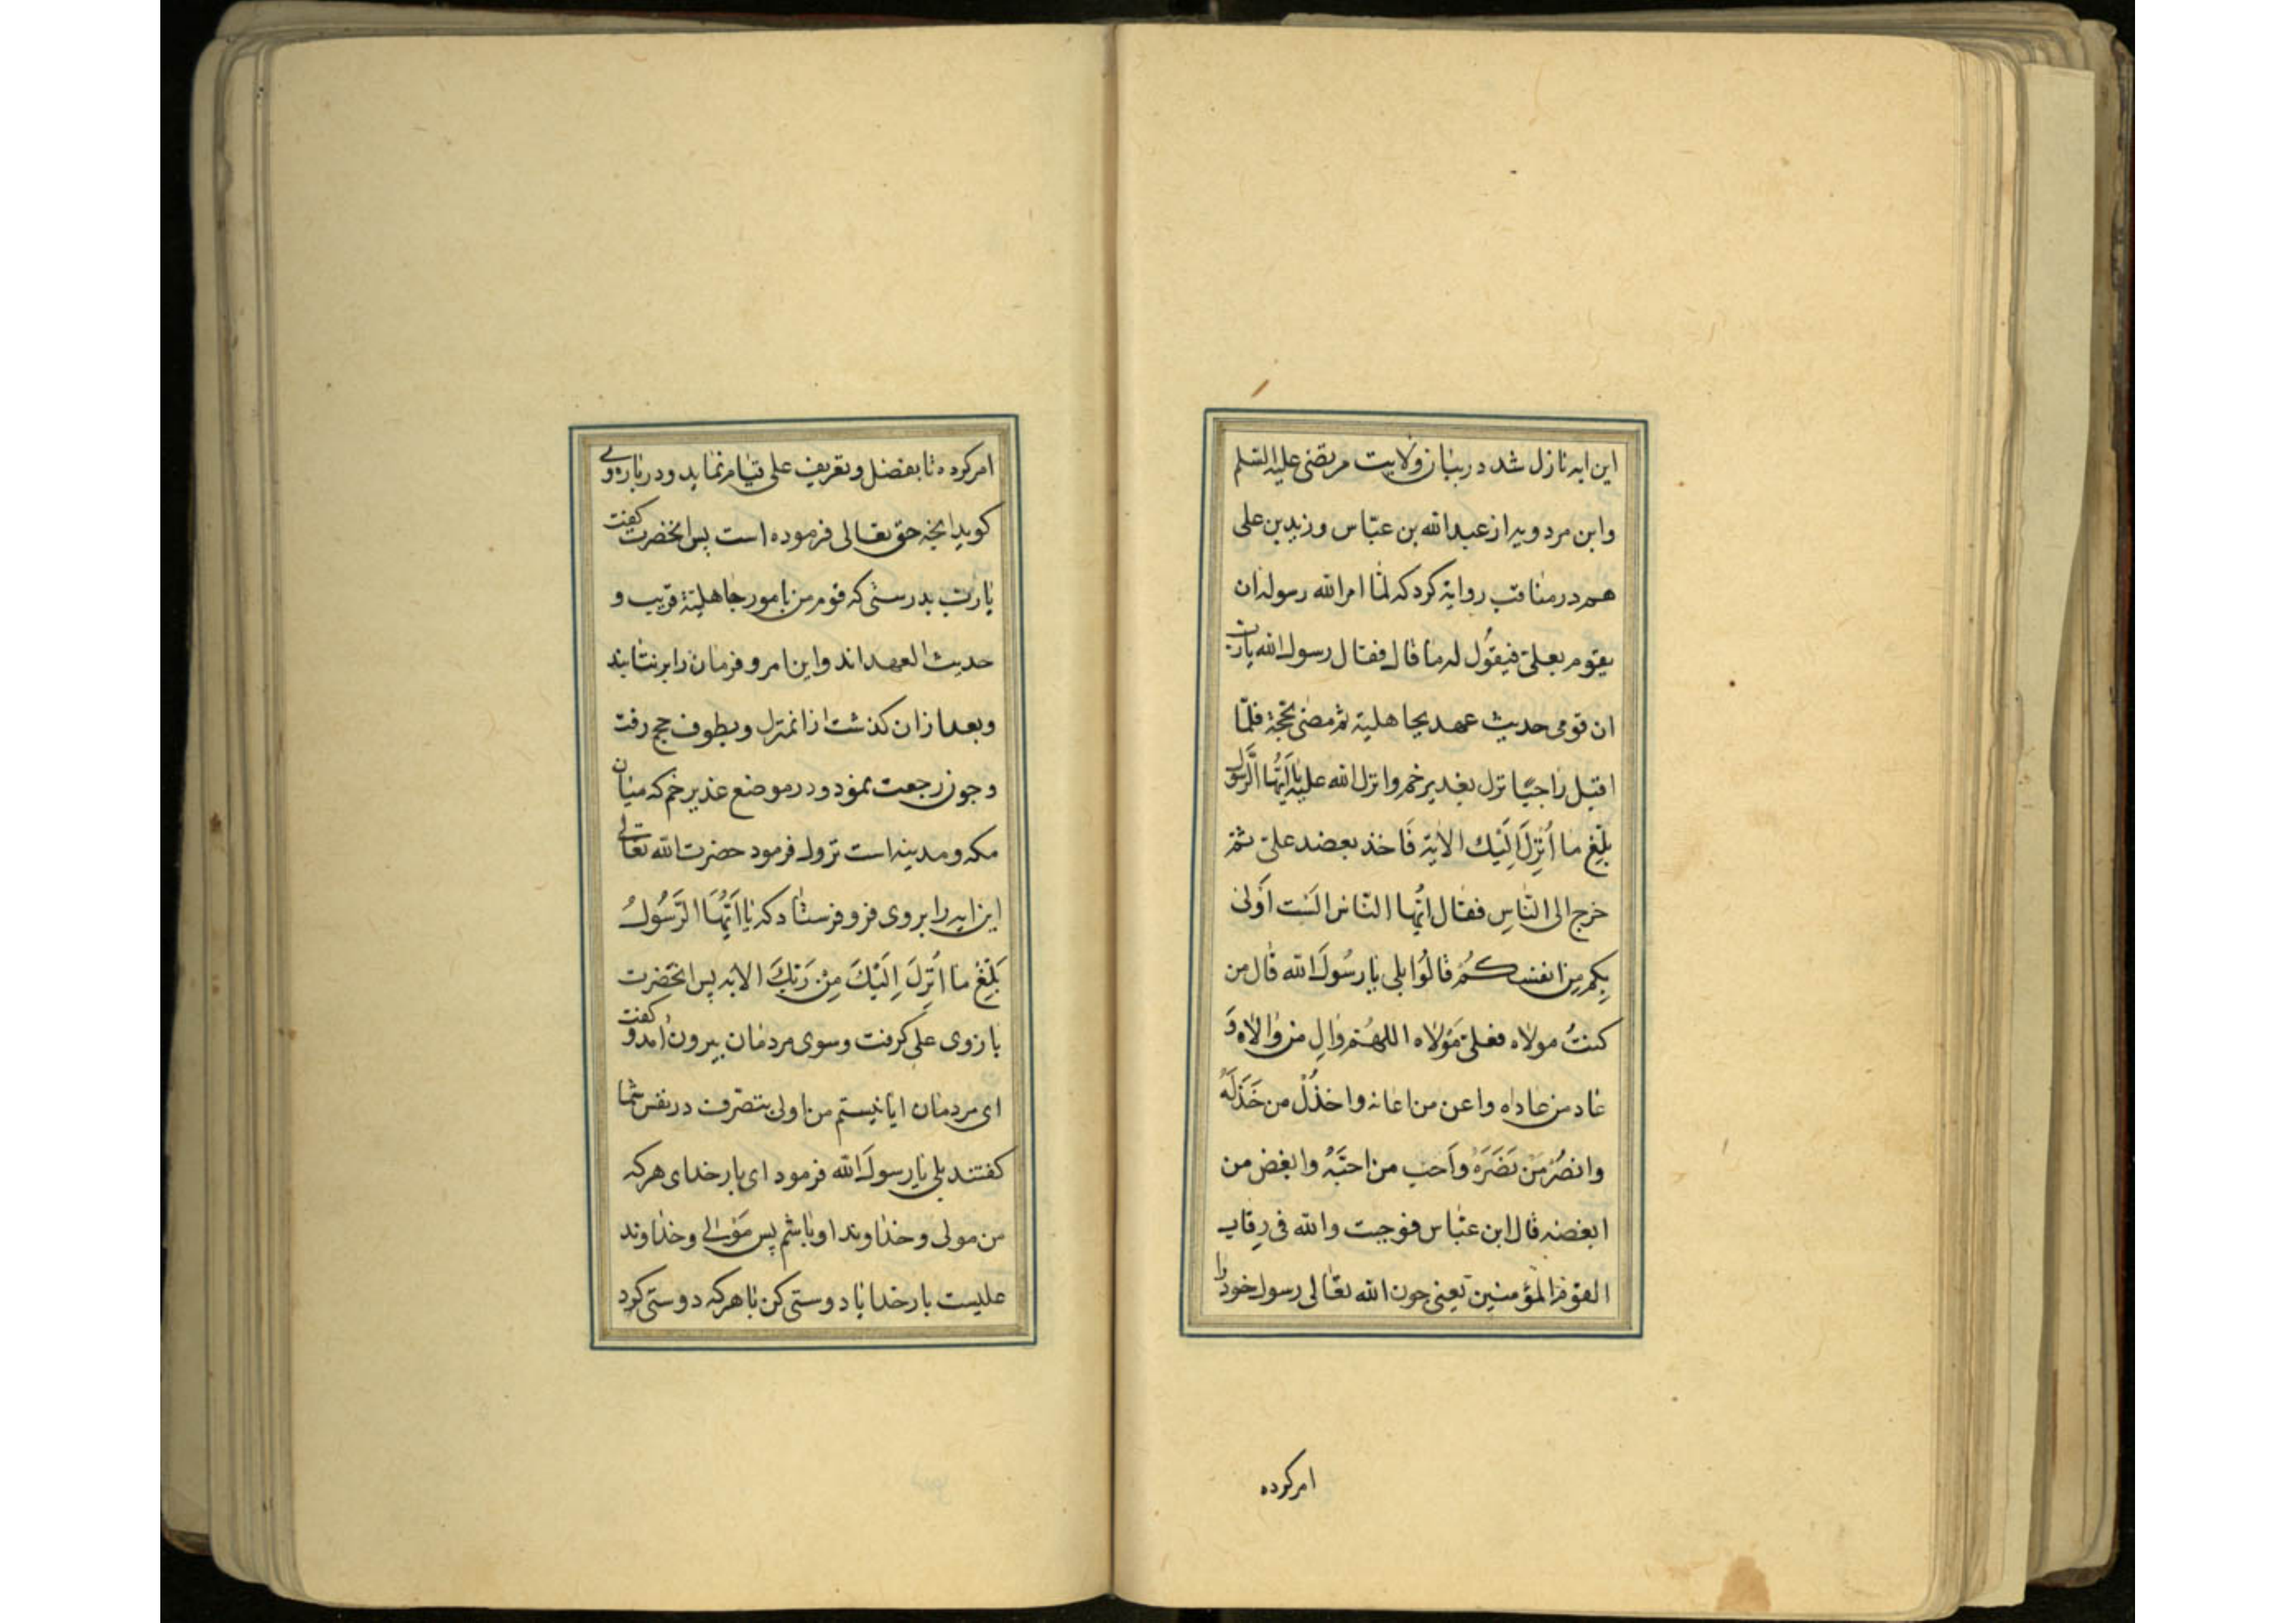 این ایه نازل شد در بیان ولایت مرتضی علیه السلم
وابن مردویه از عبدالله بن عبّاس وزید بن علی
هم در مناقب روایة کرد که لمّا امرالله رسوله ان
یقوم بعلیّ فیقول له ما قال فقال رسول الله یاربّ
ان قومی حدیث عهد بجاهلیة ثم مضی بحجة فلمّا
اقبل راجعًا نزل بغدیر خم وانزل الله علیه یا اَیُّهَا الرَّسُولُ
بَلِّغ ما اُنْزِلَ اِلَیْك الایة فَاخذ بعضد علیّ ثمّ
خرج الی النّاسِ فقال ایُّها النّاس الَسْت اَولیٰ
بِکم مِن انفسکُمْ قالُوا بلی یا رسُولَ الله قال من
کنتُ مولاه فعلیّ مَوْلاه اللهُمّ وَالِ من وٰالاه وَ
عاد من عاداه واعن من اعانه واخذُلْ من خَذَلَهُ
وانصُرْ مَنْ نَصَرَهُ واَحب من احبَّهُ وابغض من
ابغضه قال ابن عبّاس فوجبت والله فی رِقاب
القوم المؤمنین یعنی چون الله تعالی رسول خود را
امرکرده
امرکرده تا بفضل وتعریف علی قیام نماید ودر باره وی
کوید انچه حق تعالی فرموده است پس انحضرت کفت
یاربّ بدرستی که قوم من بامور جاهلیة قریب و
حدیث العهد اند واین امر وفرمان را برنتابند
وبعد ازان کذشت از انمنزل وبطوف حج رفت
وچون رجعت نمود ودر موضع غدیر خم که میان
مکه ومدینه است نزول فرمود حضرت الله تعالی
این ایه را بر وی فرو فرستاد که یا اَیُّهَا الرَّسُولُ
بَلِّغْ ما اُنْزِلَ اِلَیْكَ مِنْ رَبِّكَ الایه پس انحضرت
بازوی علی کرفت وسوی مردمان بیرون امد و کفت
ای مردمان ایا نیستم من اولی بتصرف در نفس شما
کفتند بلی یا رسولَ الله فرمود ای بار خدای هرکه
من مولی وخداوند او باشم پس مَوْلی وخداوند
علیست بار خدایا دوستی کن با هرکه دوستی کرد